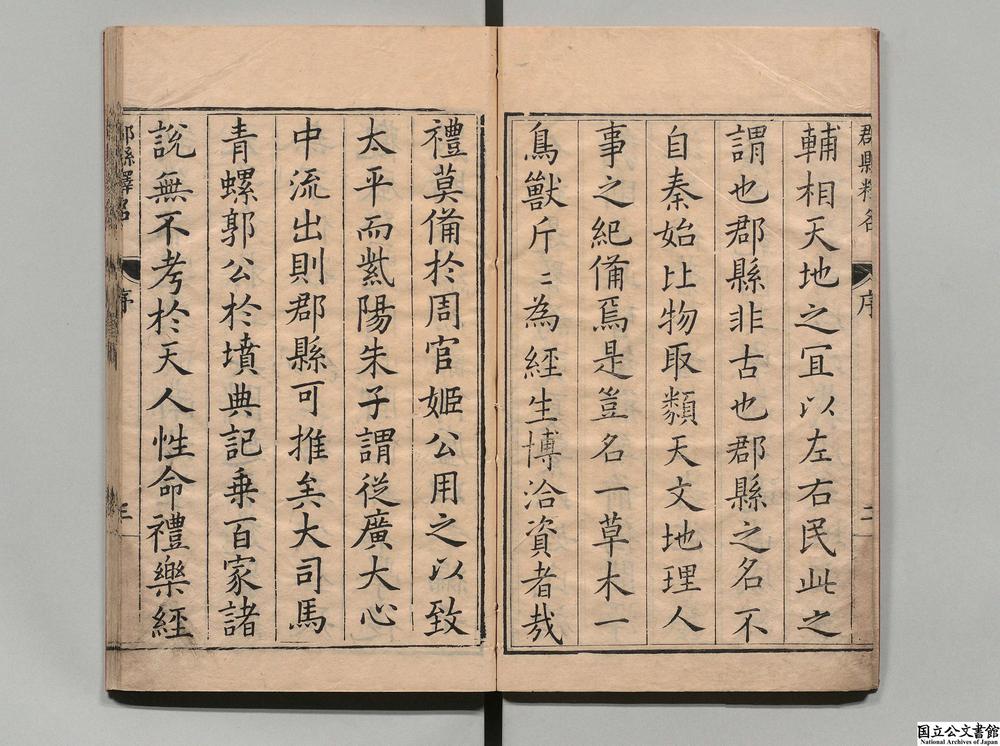 郡縣釋名
序
二
輔相天地之宜以左右民此之
謂也郡縣非古也郡縣之名不
自秦始比物取類天文地理人
事之紀備焉是豈名一草木一
鳥獸斤〻為經生博洽資者哉
禮莫備於周官姬公用之以致
太平而紫陽朱子謂從廣大心
中流出則郡縣可推矣大司馬
青螺郭公於墳典記乗百家諸
說無不考於天人性命禮樂經
郡縣釋名
序
三
国立公文書館
National Archives of Japan